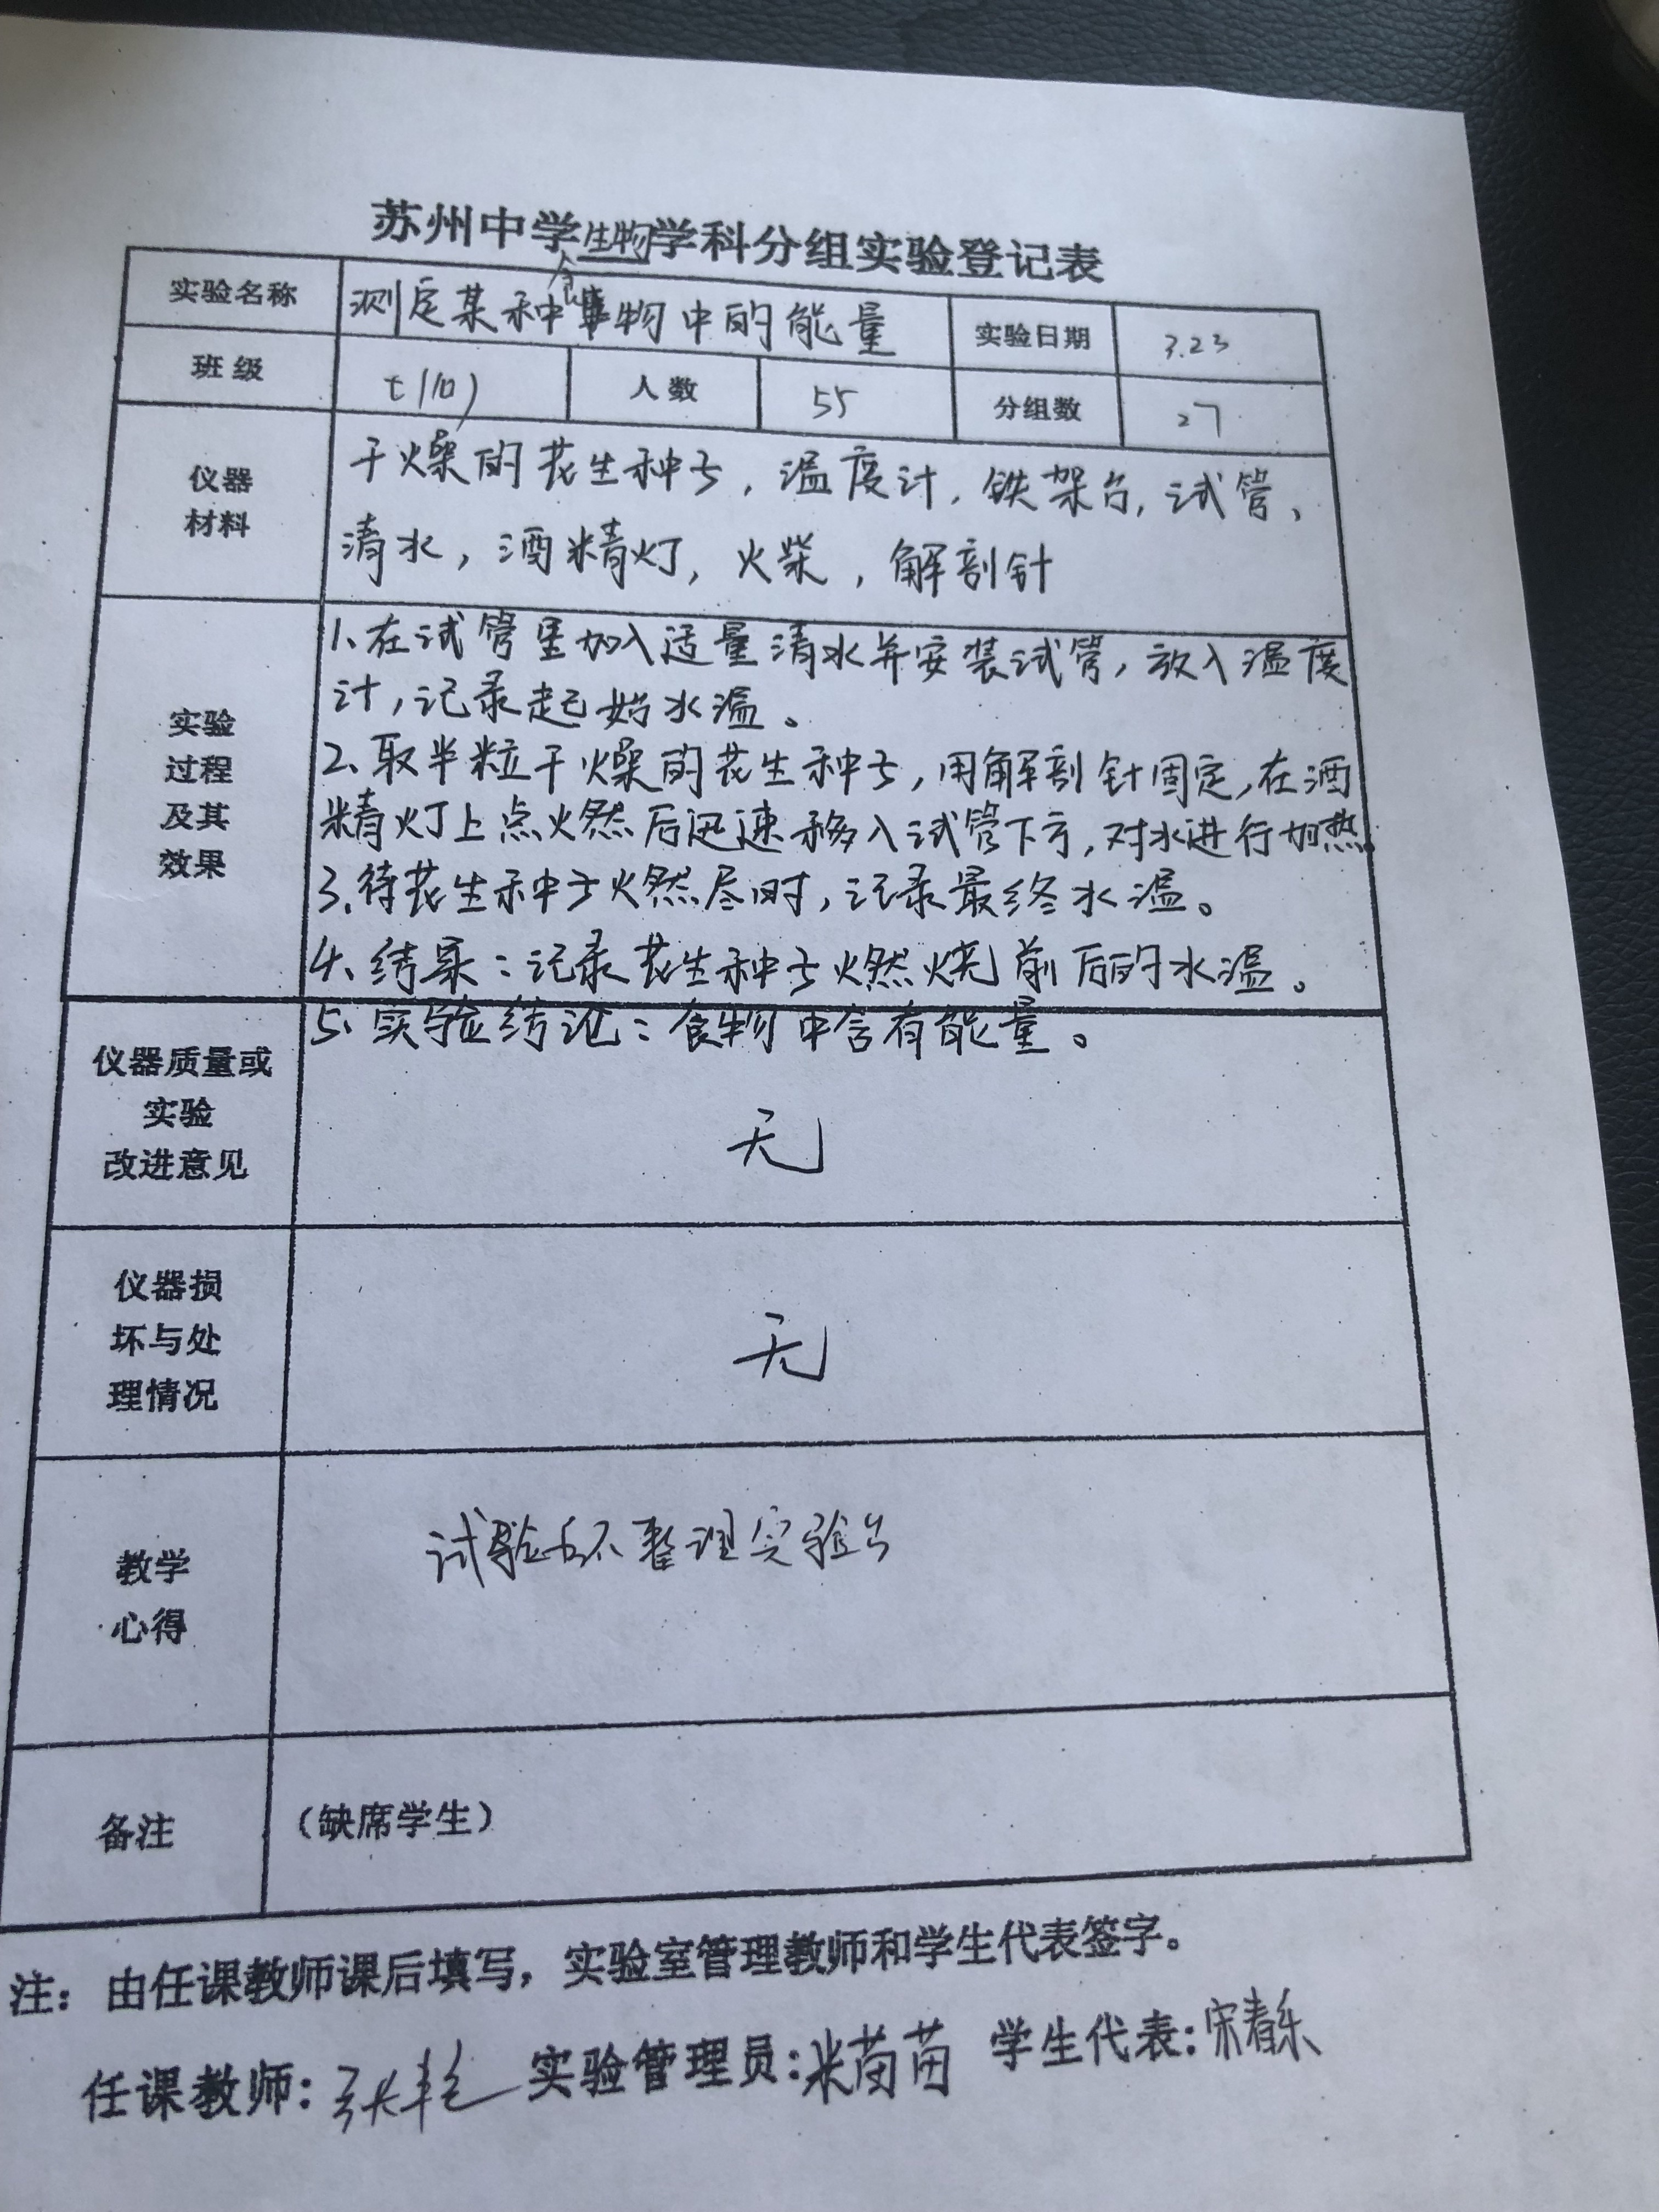 苏州中学生物学科分组实验登记表
实验名称 测定某种食物中的能量 实验日期 3.23
班级 七(10) 人数 55 分组数 27
仪器
材料
干燥的花生种子,温度计,铁架台,试管、
清水,酒精灯,火柴,解剖针
实验
过程
及其
效果
1、在试管里加入适量清水并安装试管,放入温度
计,记录起始水温。
2、取半粒干燥的花生种子,用解剖针固定,在酒
精灯上点燃后迅速移入试管下方,对水进行加热。
3、待花生种子燃尽时,记录最终水温。
4、结果:记录花生种子燃烧前后的水温。
5、实验结论:食物中含有能量。
仪器质量或
实验
改进意见
无
仪器损
坏与处
理情况
无
教学
心得
试验后不整理实验台
备注
(缺席学生)
注:由任课教师课后填写,实验室管理教师和学生代表签字。
任课教师: 实验管理员:米苗苗 学生代表:宋春乐